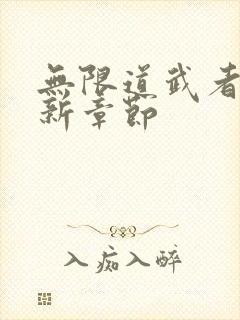 無限道武者
新章節
入痴入醉